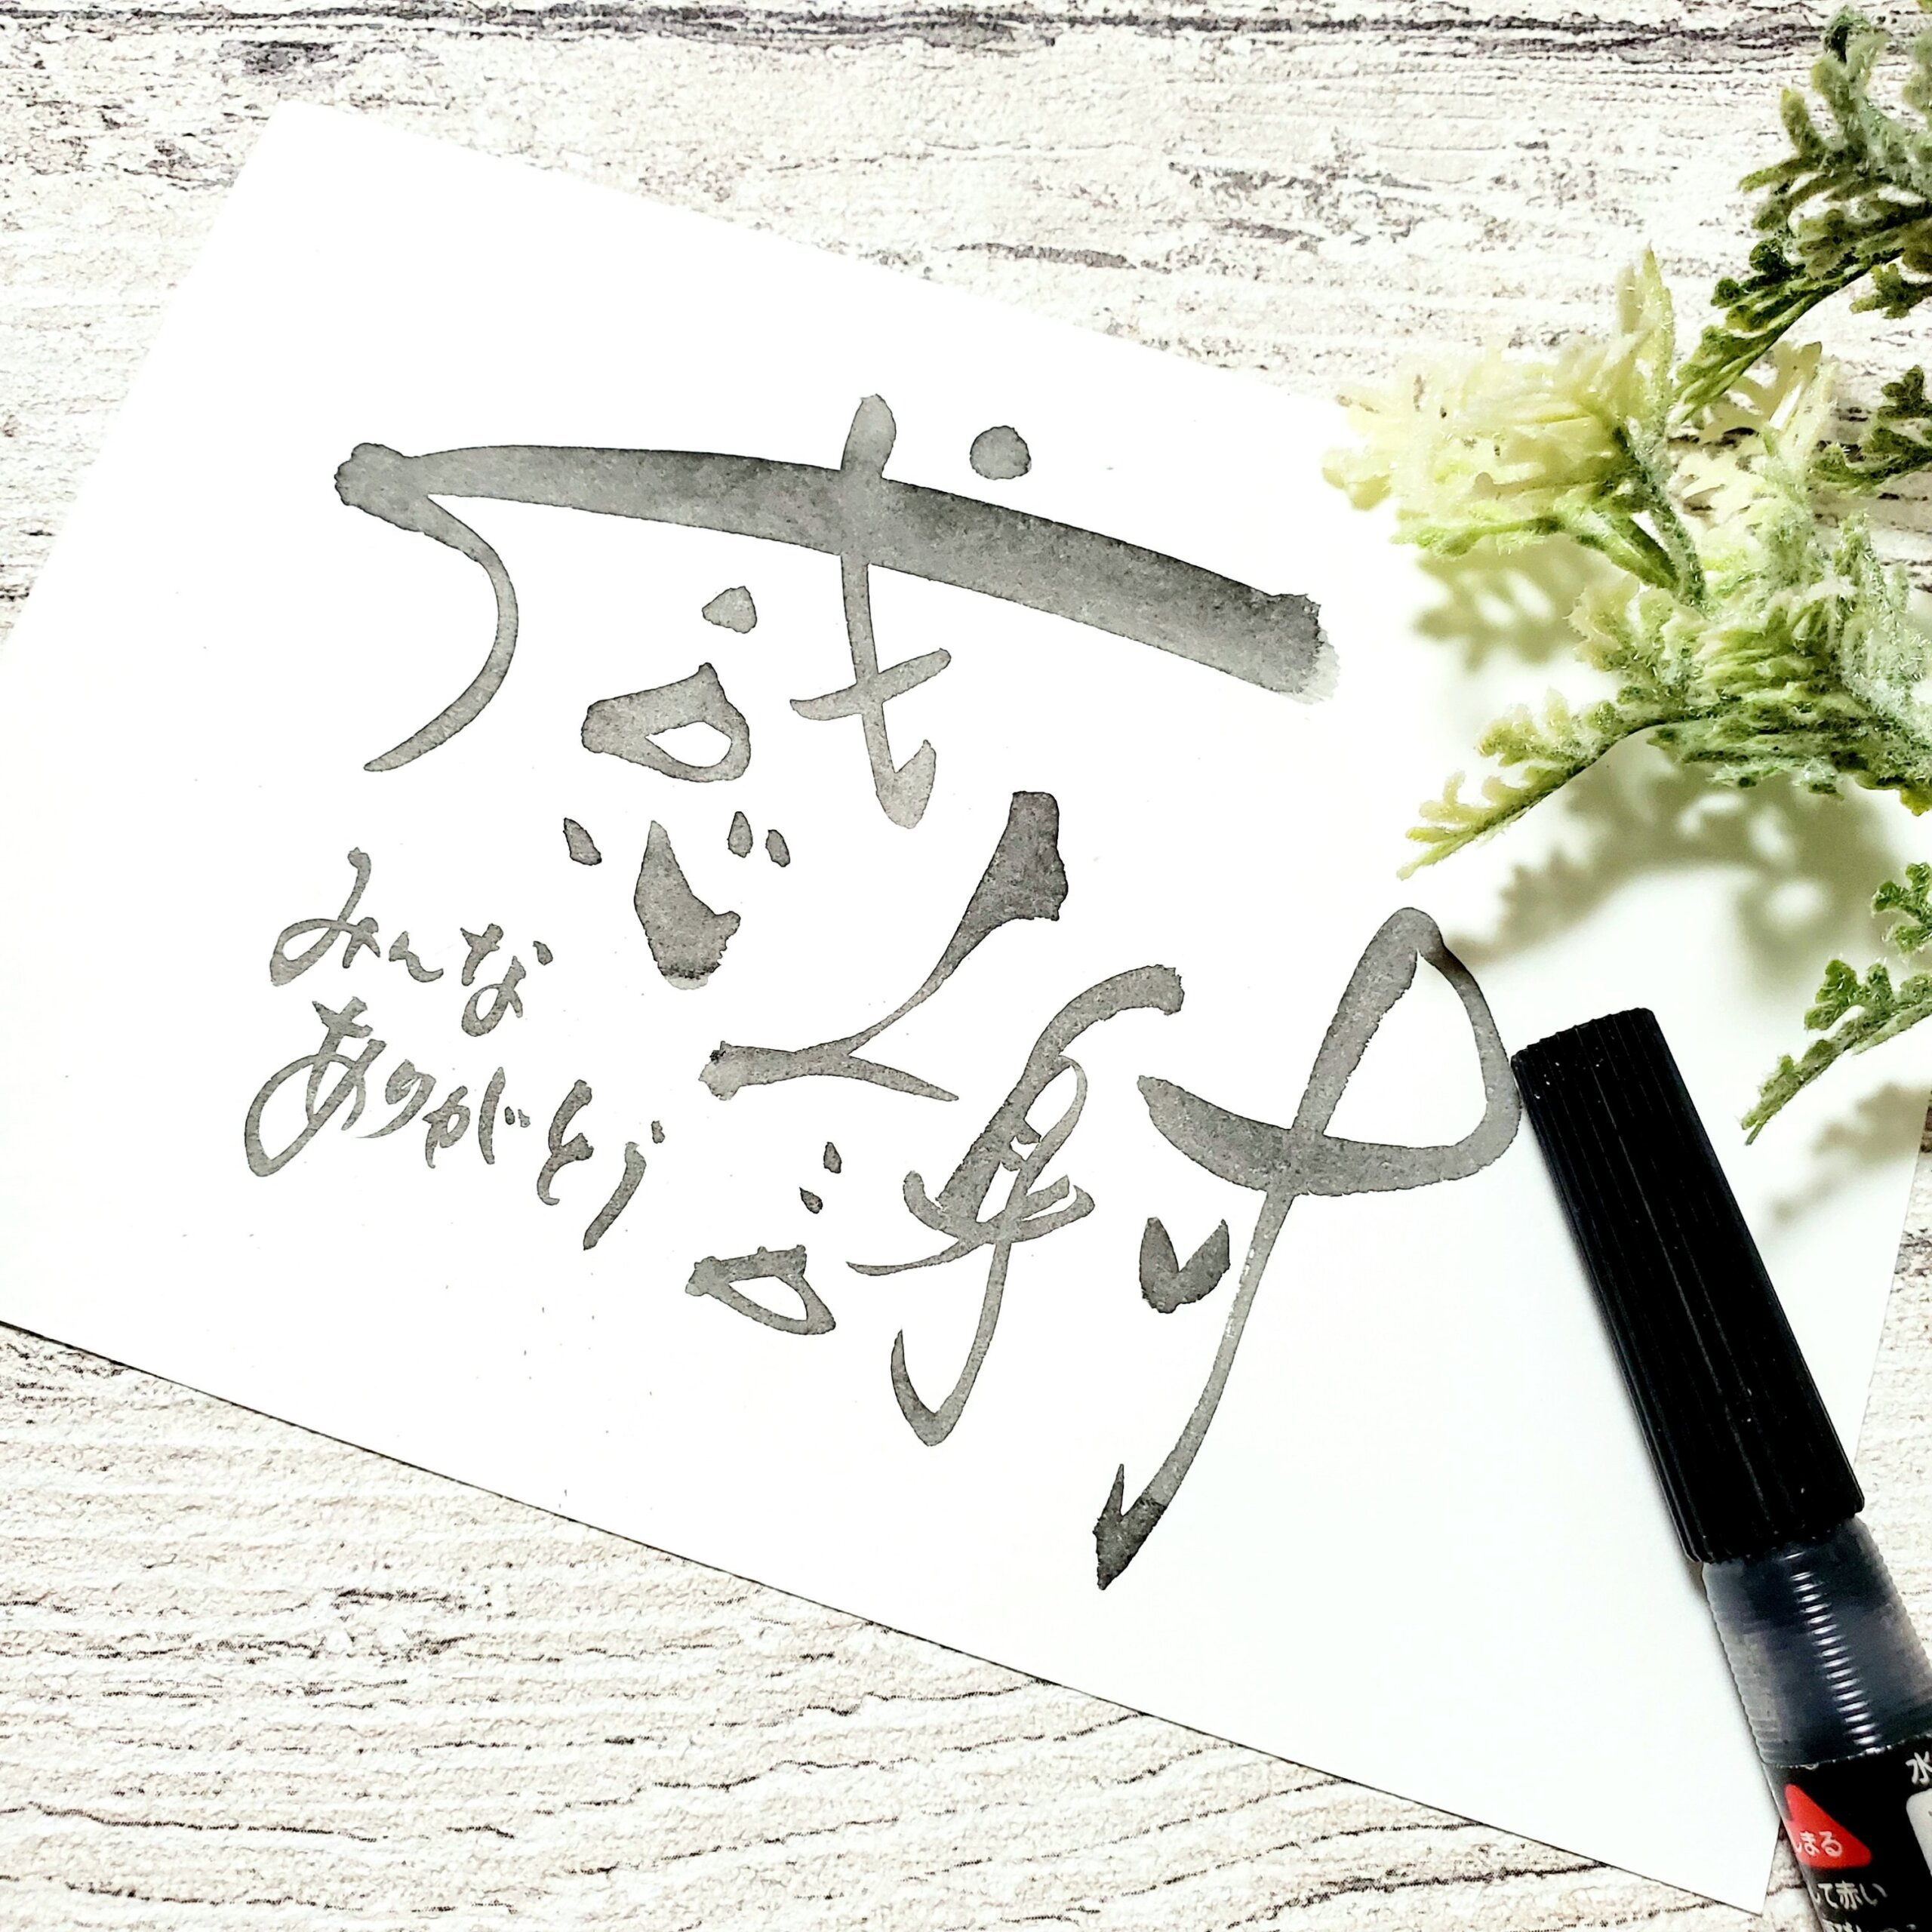 感謝
みんな
ありがとう
水
しまる
して赤い